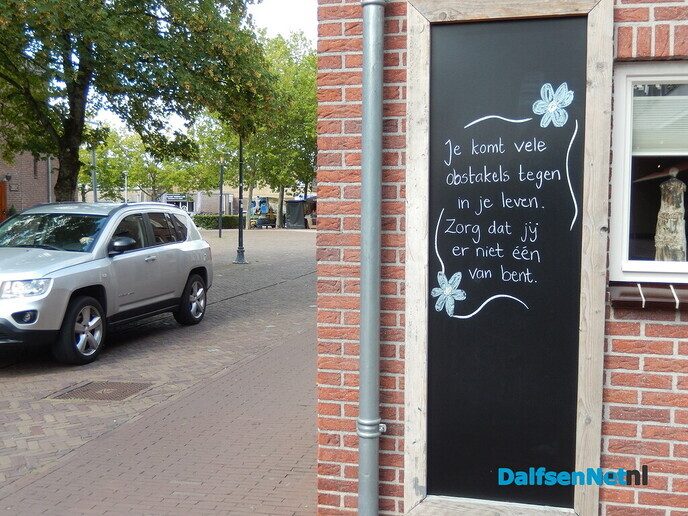 Je komt vele
obstakels tegen
in je leven.
Zorg dat jij
er niet één
van bent.
DalfsenNet.nl